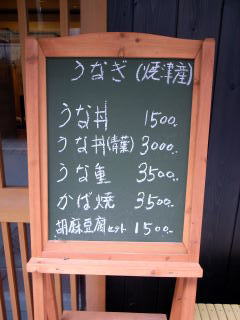 うなぎ(焼津産)
うな丼 1500.
うな丼(青葉) 3000.
うな重 3500.
かば焼 3500.
胡麻豆腐セット 1500.